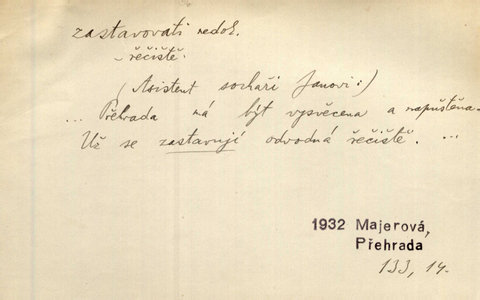 zastavovati nedok.
řečiště.
(Asistent sochaři Janovi:)
... Přehrada má být vysvěcena a napuštěna.
Už se zastavují odvodná řečiště. ...
1932 Majerová,
Přehrada
133, 14.